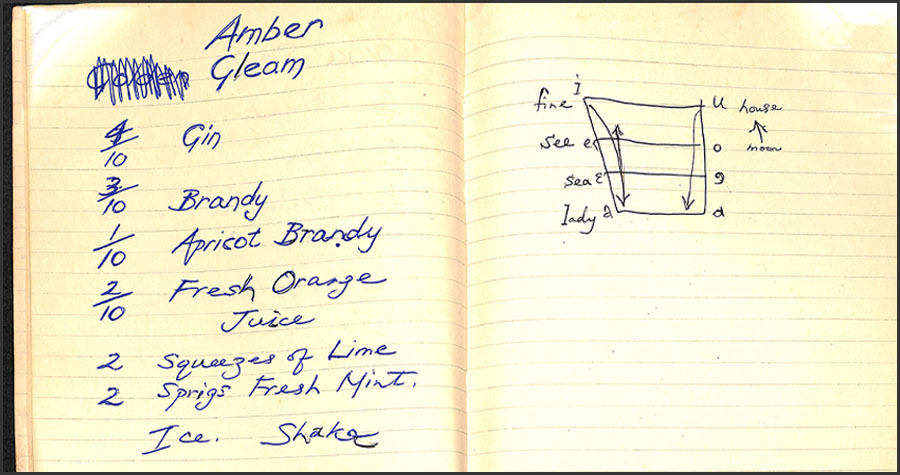 Amber
Gleam
4/10 Gin
3/10 Brandy
1/10 Apricot Brandy
2/10 Fresh Orange
Juice
2 Squeezes of Lime
2 Sprigs Fresh Mint.
Ice. Shake
fine i u house
see e o moon
sea ɛ ɔ
lady a ɑ